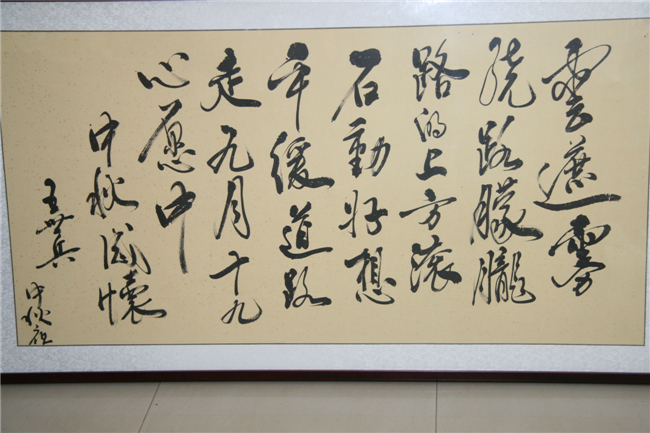 雲遮雾
绕路朦朧
路的上方滚
石動好想
平缓道路
走九月十九
心愿中
中秋感懷
王
中秋夜